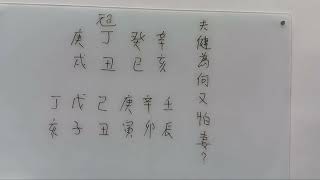 夫健為何又怕妻？
庚 丁 癸 辛
戌 丑 巳 亥
丁 戊 己 庚 辛 壬
亥 子 丑 寅 卯 辰